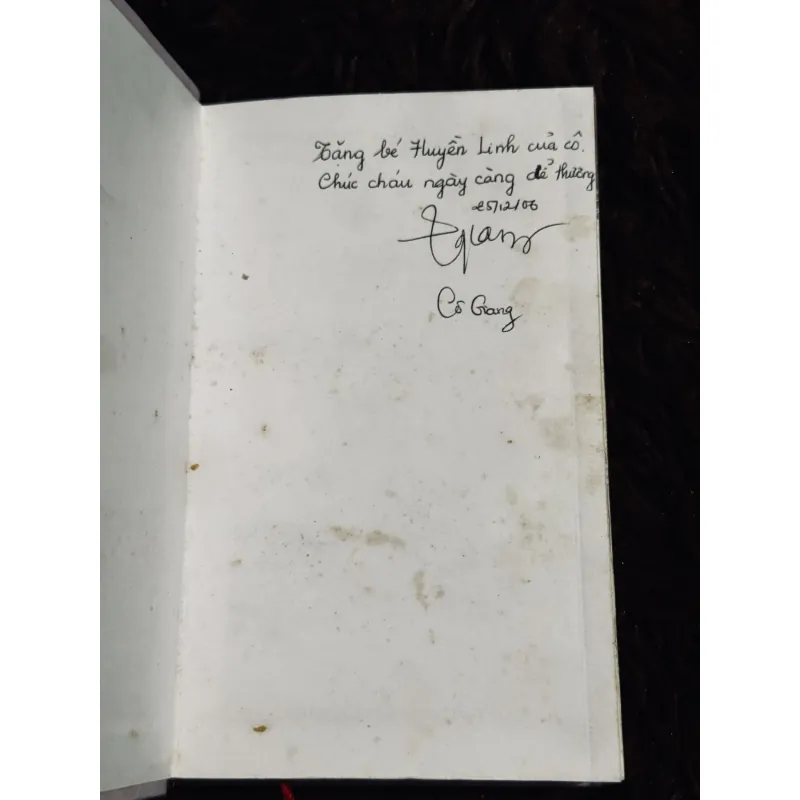 Tặng bé Huyền Linh của cô.
Chúc cháu ngày càng dể thương
25/12/06
Giang
Cô Giang